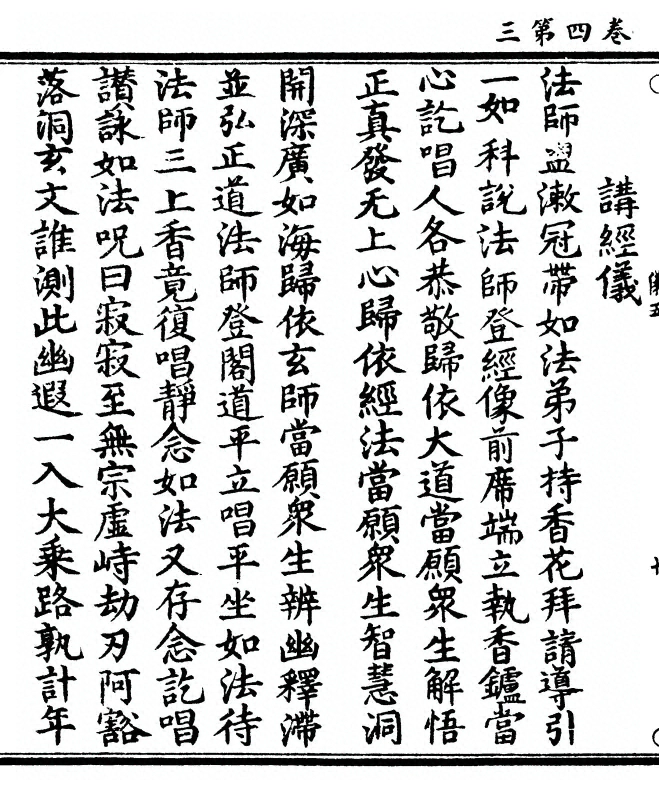 卷四第三
講經儀
法師盥漱冠帶如法弟子持香花拜請導引
一如科說法師登經像前席端立執香鑪當
心訖唱人各恭敬歸依大道當願眾生解悟
正真發无上心歸依經法當願眾生智慧洞
開深廣如海歸依玄師當願眾生辨幽釋滯
並弘正道法師登閣道平立唱平坐如法待
法師三上香竟復唱靜念如法又存念訖唱
讃詠如法呪曰寂寂至無宗虛峙劫刃阿豁
落洞玄文誰測此幽遐一入大乘路孰計年